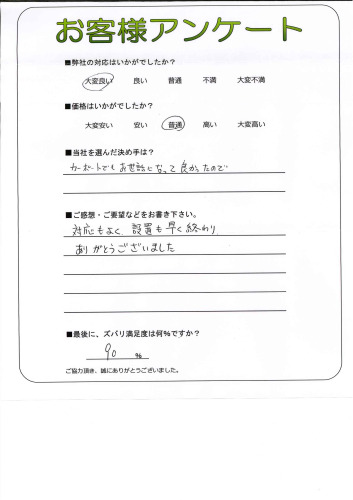 お客様アンケート
■弊社の対応はいかがでしたか？
大変良い 良い 普通 不満 大変不満
■価格はいかがでしたか？
大変安い 安い 普通 高い 大変高い
■当社を選んだ決め手は？
カーポートでもお世話になって良かったので
■ご感想・ご要望などをお書き下さい。
対応もよく、設置も早く終わり
ありがとうございました
■最後に、ズバリ満足度は何％ですか？
90 ％
ご協力頂き、誠にありがとうございました。